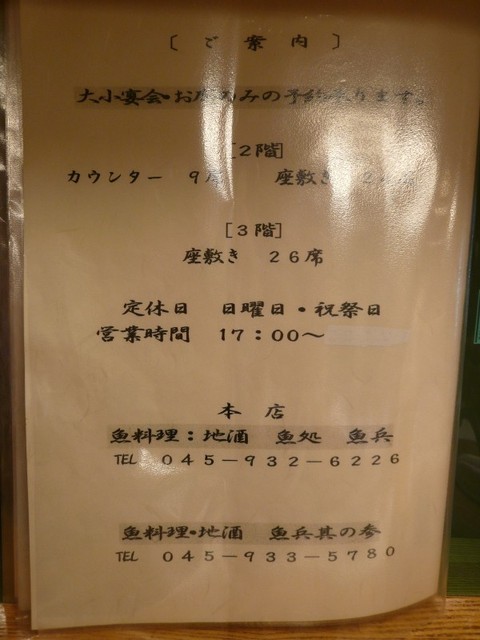 ［ご案内］
大小宴会・お座のみの予約承ります。
［２階］
カウンター ９席 座敷き
［３階］
座敷き ２６席
定休日 日曜日・祝祭日
営業時間 １７：００〜
本店
魚料理：地酒 魚処 魚兵
TEL ０４５－９３２－６２２６
魚料理・地酒 魚兵其の参
TEL ０４５－９３３－５７８０